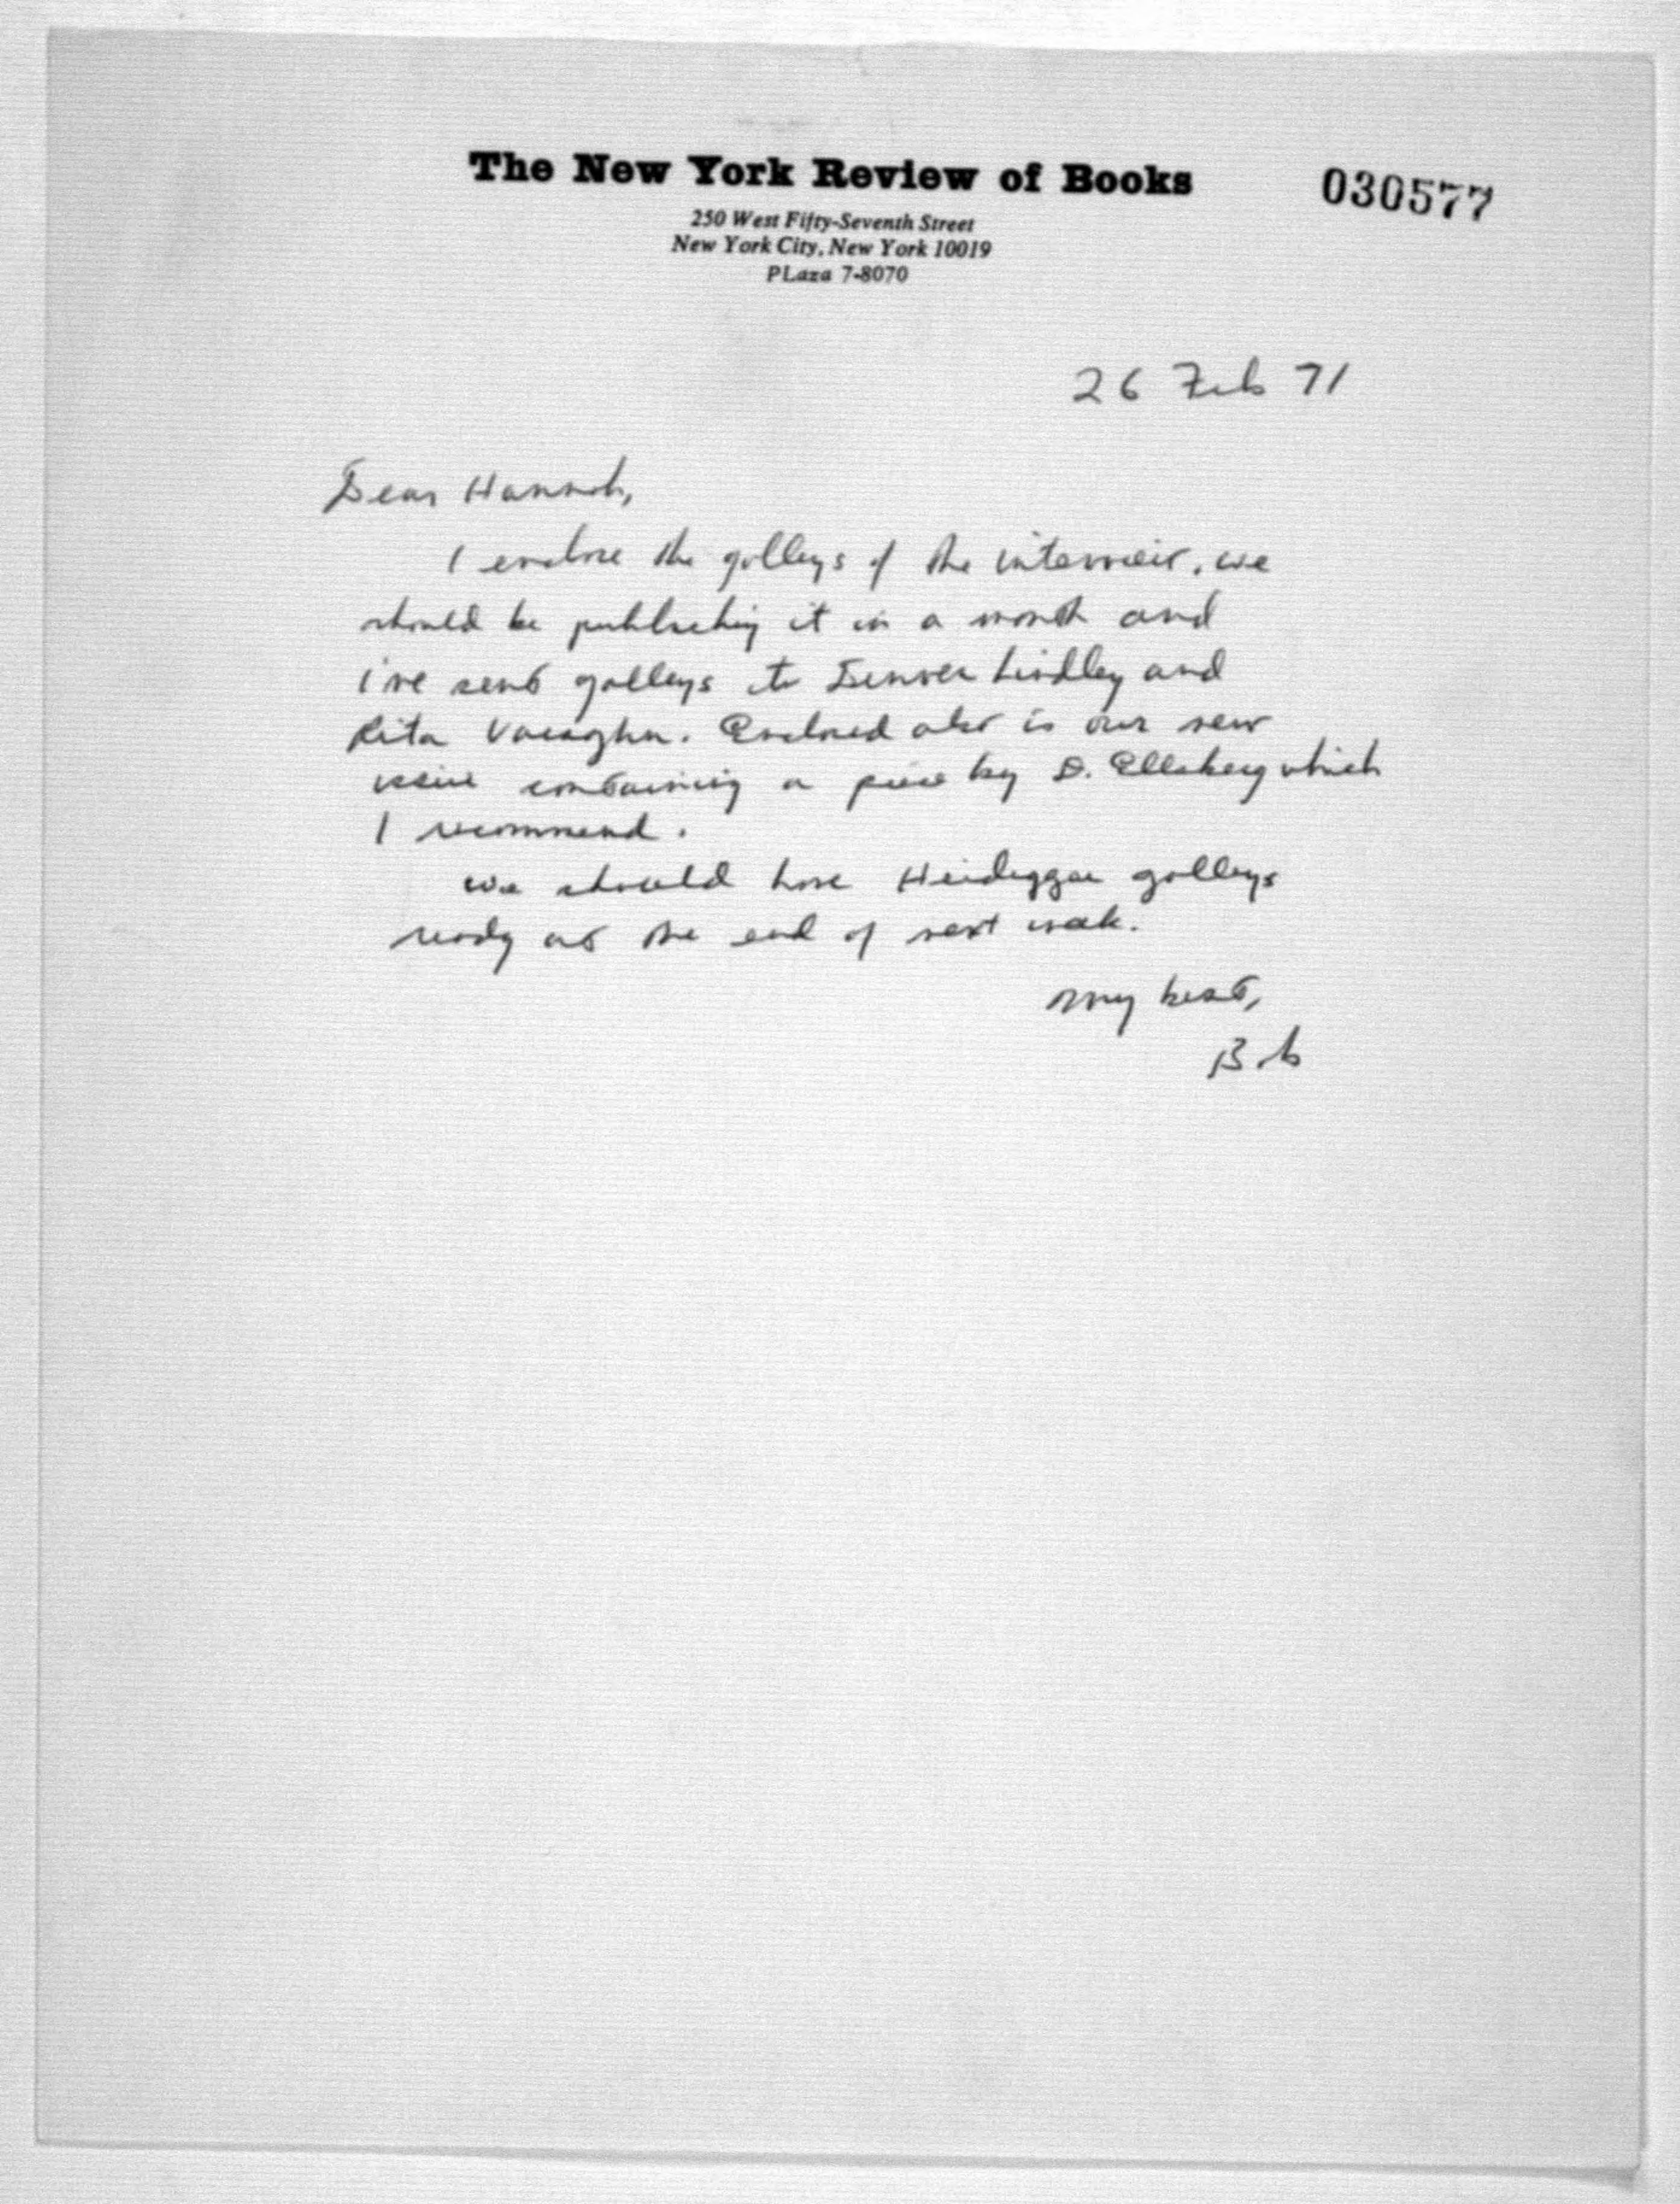 The New York Review of Books
030577
250 West Fifty-Seventh Street
New York City, New York 10019
PLaza 7-8070
26 Feb 71
Dear Hannah,
I enclose the galleys of the interview. We
should be publishing it in a month and
I've sent galleys to Denver Lindley and
Rita Vaughn. Enclosed also is our new
issue containing a piece by D. Ellsberg which
I recommend.
We should have Heidegger galleys
ready at the end of next week.
My best,
Bob